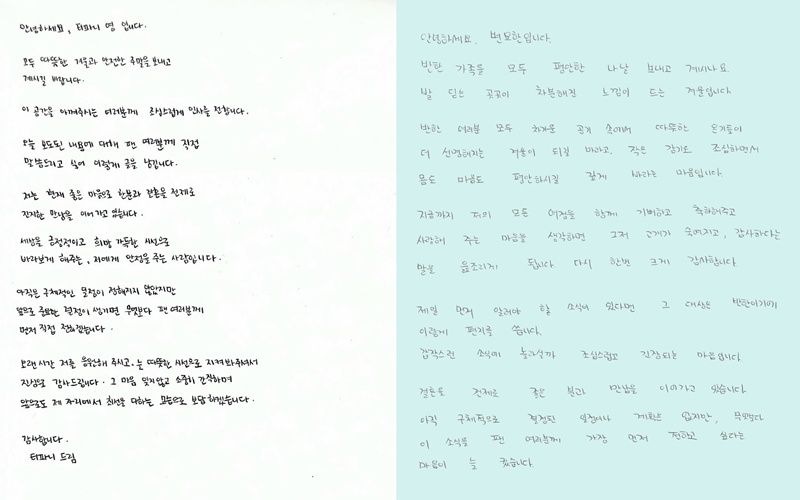 안녕하세요, 티파니 영 입니다.
모두 따뜻한 겨울과 안전한 주말을 보내고
계시길 바랍니다.
이 공간을 아껴주시는 여러분께 조심스럽게 인사를 전합니다.
오늘 보도된 내용에 대해 팬 여러분께 직접
말씀드리고 싶어 이렇게 글을 남깁니다.
저는 현재 좋은 마음으로 한분과 결혼을 전제로
진지한 만남을 이어가고 있습니다.
세상을 긍정적이고 희망 가득한 시선으로
바라보게 해주는, 저에게 안정을 주는 사람입니다.
아직은 구체적인 일정이 정해지지 않았지만
앞으로 중요한 결정이 생기면 무엇보다 팬 여러분께
먼저 직접 전하겠습니다.
오랜시간 저를 응원해 주시고, 늘 따뜻한 시선으로 지켜봐주셔서
진심으로 감사드립니다. 그 마음 잊지않고 소중히 간직하며
앞으로도 제 자리에서 최선을 다하는 모습으로 보답하겠습니다.
감사합니다.
티파니 드림
안녕하세요. 변요한입니다.
반한 가족들 모두 평안한 나날 보내고 계시나요.
발 딛는 곳곳이 차분해진 느낌이 드는 겨울입니다.
반한 여러분 모두 차가운 공기 속에서 따뜻한 온기들이
더 선명해지는 겨울이 되길 바라고, 작은 감기도 조심하면서
몸도 마음도 평안하시길 짙게 바라는 마음입니다.
지금까지 저의 모든 여정을 함께 기뻐하고 축하해주고
사랑해 주는 마음을 생각하면 그저 고개가 숙여지고, 감사하다는
말을 읊조리게 됩니다. 다시 한번 크게 감사합니다.
제일 먼저 알려야 할 소식이 있다면 그 대상은 반한이기에
이렇게 편지를 씁니다.
갑작스런 소식에 놀라실까 조심스럽고 긴장되는 마음입니다.
결혼을 전제로 좋은 분과 만남을 이어가고 있습니다.
아직 구체적으로 결정된 일정이나 계획은 없지만, 무엇보다
이 소식을 팬 여러분께 가장 먼저 전하고 싶다는
마음이 늘 컸습니다.